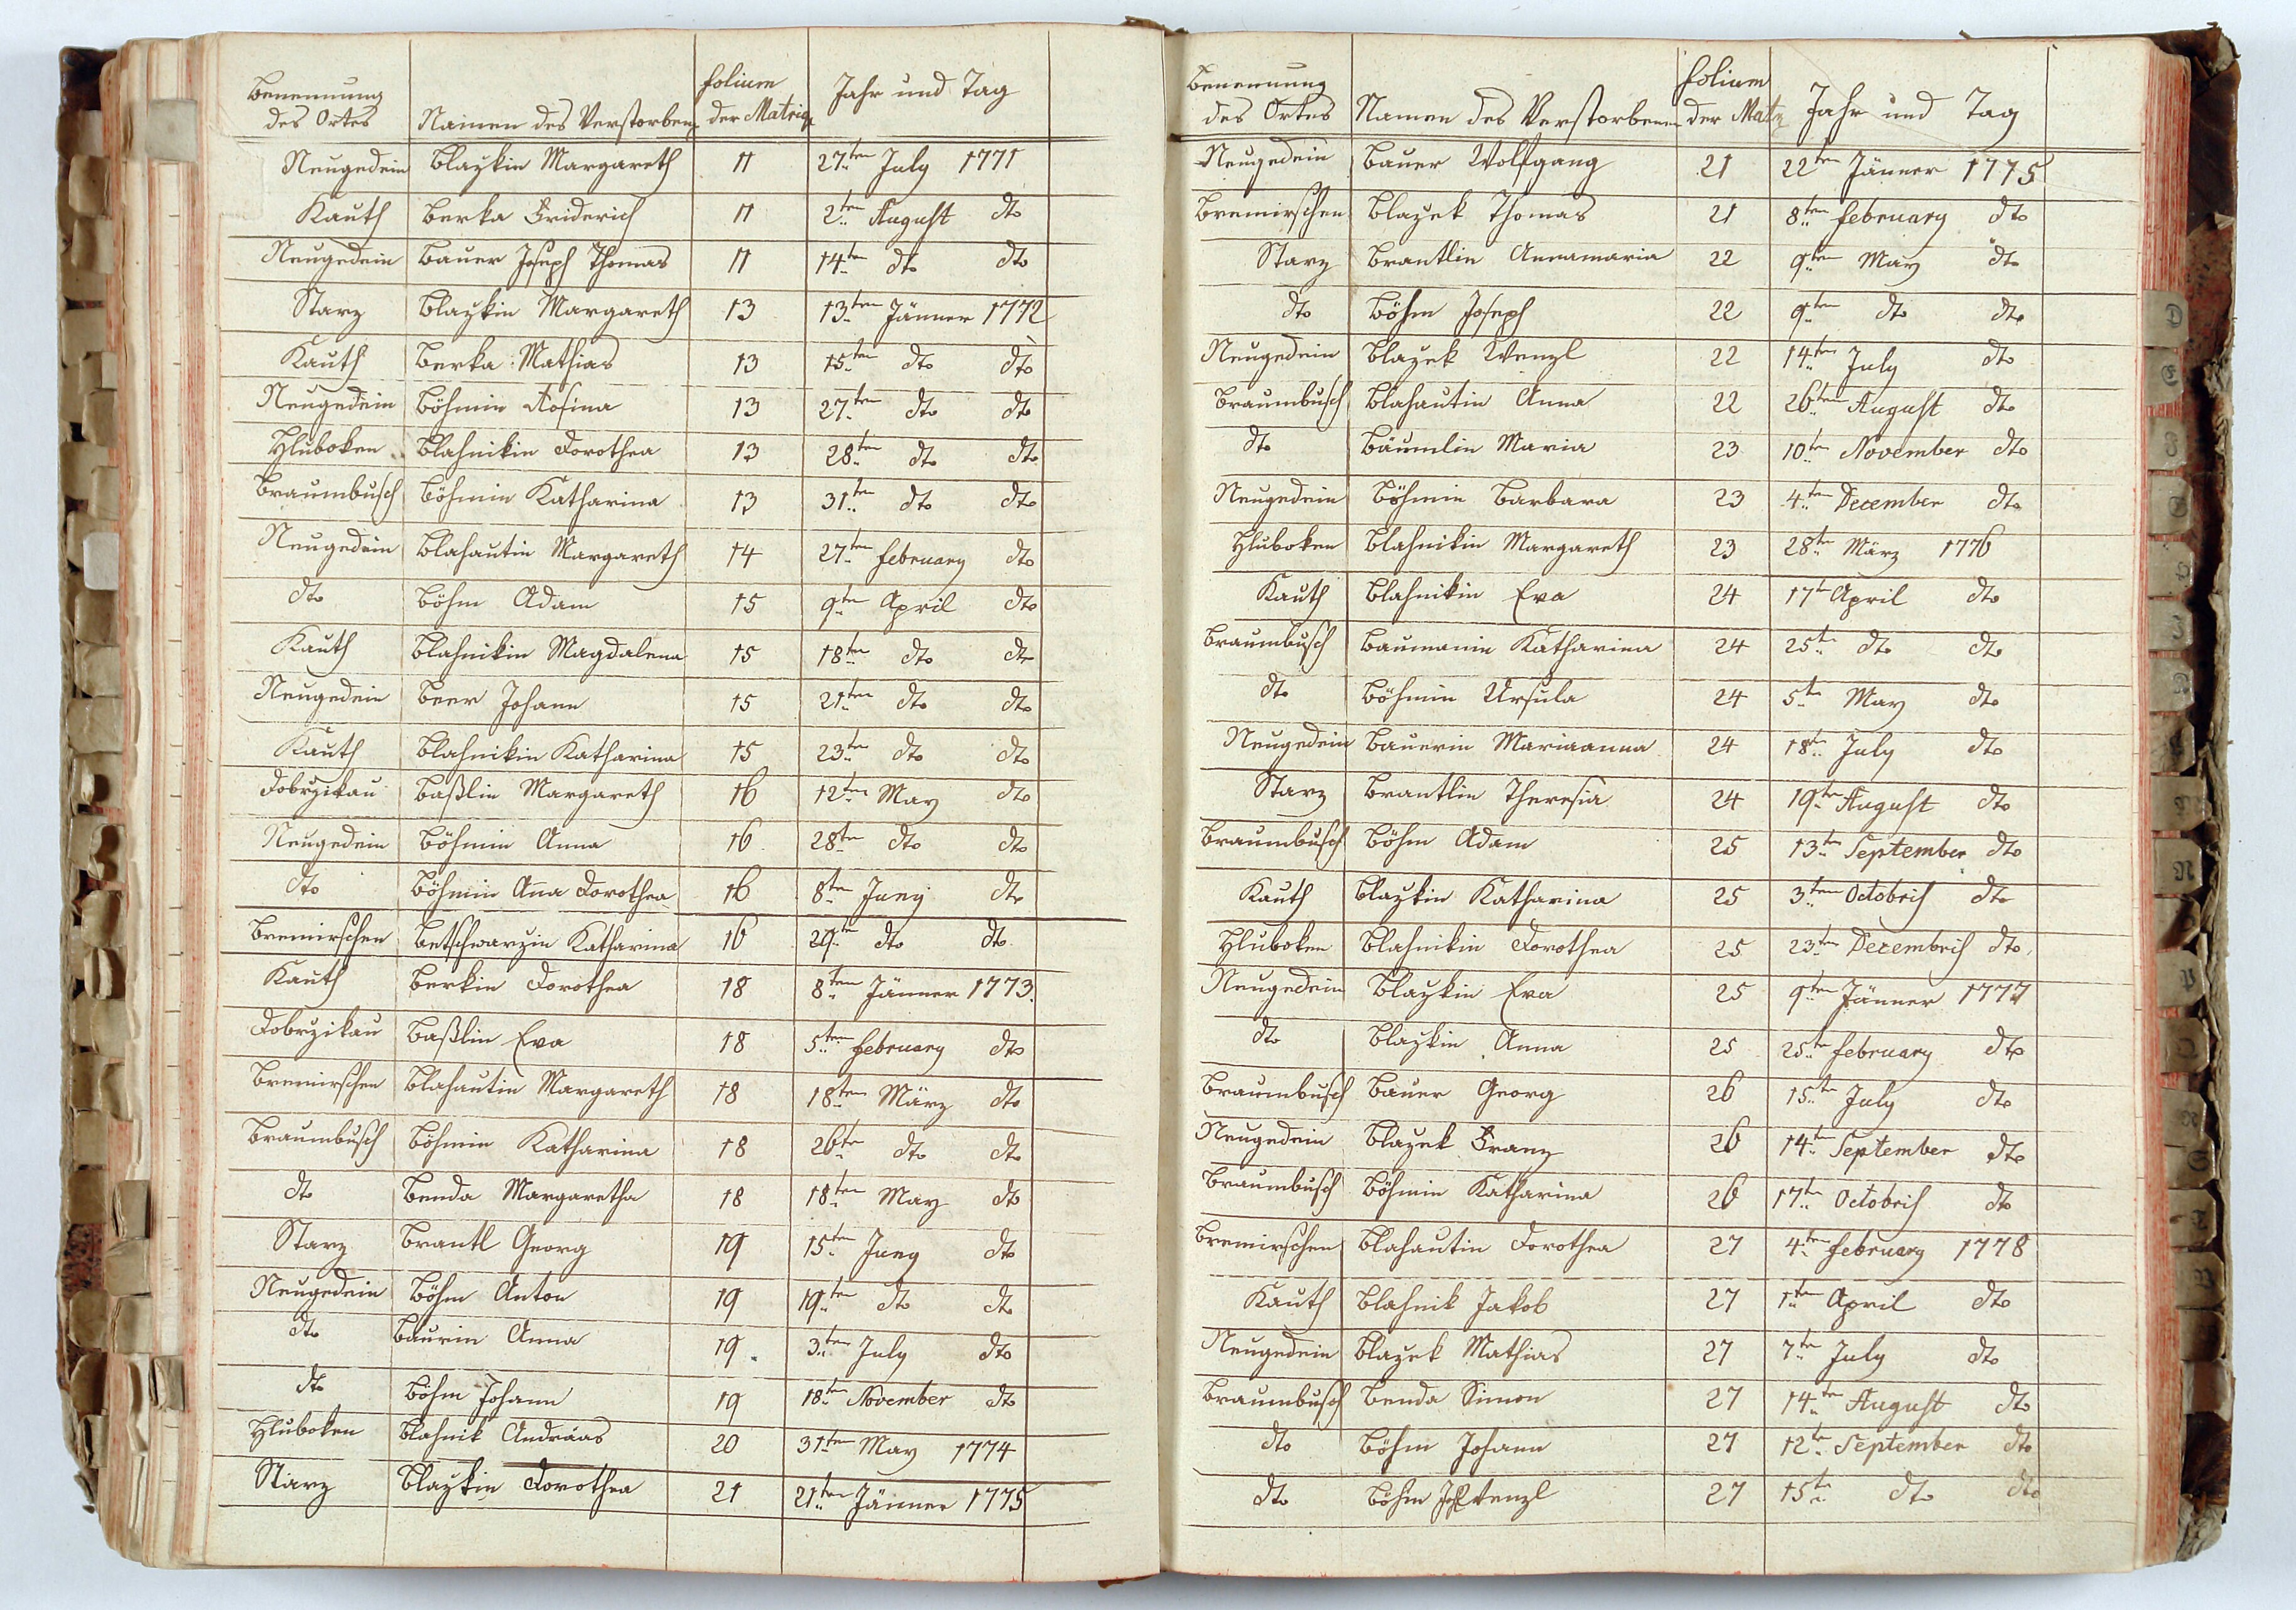 Benennung des Ortes | Namen des Verstorbenen | folium der Matriq | Jahr und Tag
Neugedein | Blazkin Margareth | 11 | 27ten July 1771
Kauth | Berka Friderich | 11 | 2ten August dto
Neugedein | Bauer Joseph Thomas | 11 | 14ten dto dto
Starz | Blazkin Margareth | 13 | 13ten Jänner 1772
Kauth | Berka Mathias | 13 | 15ten dto dto
Neugedein | Böhmin Rosina | 13 | 27ten dto dto
Hluboken | Blahnikin Dorothea | 13 | 28ten dto dto
Braumbusch | Böhmin Katharina | 13 | 31ten dto dto
Neugedein | Blahautin Margareth | 14 | 27ten february dto
dto | Böhm Adam | 15 | 9ten April dto
Kauth | Blahnikin Magdalena | 15 | 18ten dto dto
Neugedein | Beer Johann | 15 | 21ten dto dto
Kauth | Blahnikin Katharina | 15 | 23ten dto dto
Dobrzikau | Baßlin Margareth | 16 | 12ten May dto
Neugedein | Böhmin Anna | 16 | 28ten dto dto
dto | Böhmin Aña Dorothea | 16 | 8ten Juny dto
Bremirschen | Betschwarzin Katharina | 16 | 29ten dto dto
Kauth | Berkin Dorothea | 18 | 8ten Jänner 1773.
Dobrzikau | Baßlin Eva | 18 | 5ten february dto
Bremirschen | Blahautin Margareth | 18 | 18ten März dto
Braumbusch | Böhmin Katharina | 18 | 26ten dto dto
dto | Benda Margaretha | 18 | 18ten May dto
Starz | Brantl Georg | 19 | 15ten Juny dto
Neugedein | Böhm Anton | 19 | 19ten dto dto
dto | Baurin Anna | 19. | 3ten July dto
dto | Böhm Johann | 19 | 18ten November dto
Hluboken | Blahnik Andräas | 20 | 31ten May 1774
Starz | Blazkin Dorothea | 21 | 21ten Jänner 1775
Benennung des Ortes | Namen des Verstorbenen | folium der Matz | Jahr und Tag
Neugedein | Bauer Wolfgang | 21 | 22ten Jänner 1775
Bremirschen | Blazek Thomas | 21 | 8ten february dto
Starz | Brantlin Annamaria | 22 | 9ten May dto
dto | Böhm Joseph | 22 | 9ten dto dto
Neugedein | Blazek Wenzl | 22 | 14ten July dto
Braumbusch | Blahautin Anna | 22 | 26ten August dto
dto | Bäumlin Maria | 23 | 10ten November dto
Neugedein | Böhmin Barbara | 23 | 4ten December dto
Hluboken | Blahnikin Margareth | 23 | 28ten März 1776
Kauth | Blahnikin Eva | 24 | 17ten April dto
Braumbusch | Baumanin Katharina | 24 | 25ten dto dto
dto | Böhmin Ursula | 24 | 5ten May dto
Neugedein | Bauerin Mariaanna | 24 | 18ten July dto
Starz | Brantlin Theresia | 24 | 19ten August dto
Braumbusch | Böhm Adam | 25 | 13ten September dto
Kauth | Blazkin Katharina | 25 | 3ten Octobris dto
Hluboken | Blahnikin Dorothea | 25 | 23ten Decembris dto.
Neugedein | Blazkin Eva | 25 | 9ten Jänner 1777
dto | Blazkin Anna | 25 | 25ten february dto
Braumbusch | Bauer Georg | 26 | 15ten July dto
Neugedein | Blazek Franz | 26 | 14ten September dto
Braumbusch | Böhmin Katharina | 26 | 17ten Octobris dto
Bremirschen | Blahautin Dorothea | 27 | 4ten february 1778
Kauth | Blahnik Jakob | 27 | 1ten April dto
Neugedein | Blazek Mathias | 27 | 7ten July dto
Braumbusch | Benda Simon | 27 | 14ten August dto
dto | Böhm Johann | 27 | 12ten September dto
dto | Böhm Wenzl | 27 | 15ten dto dto